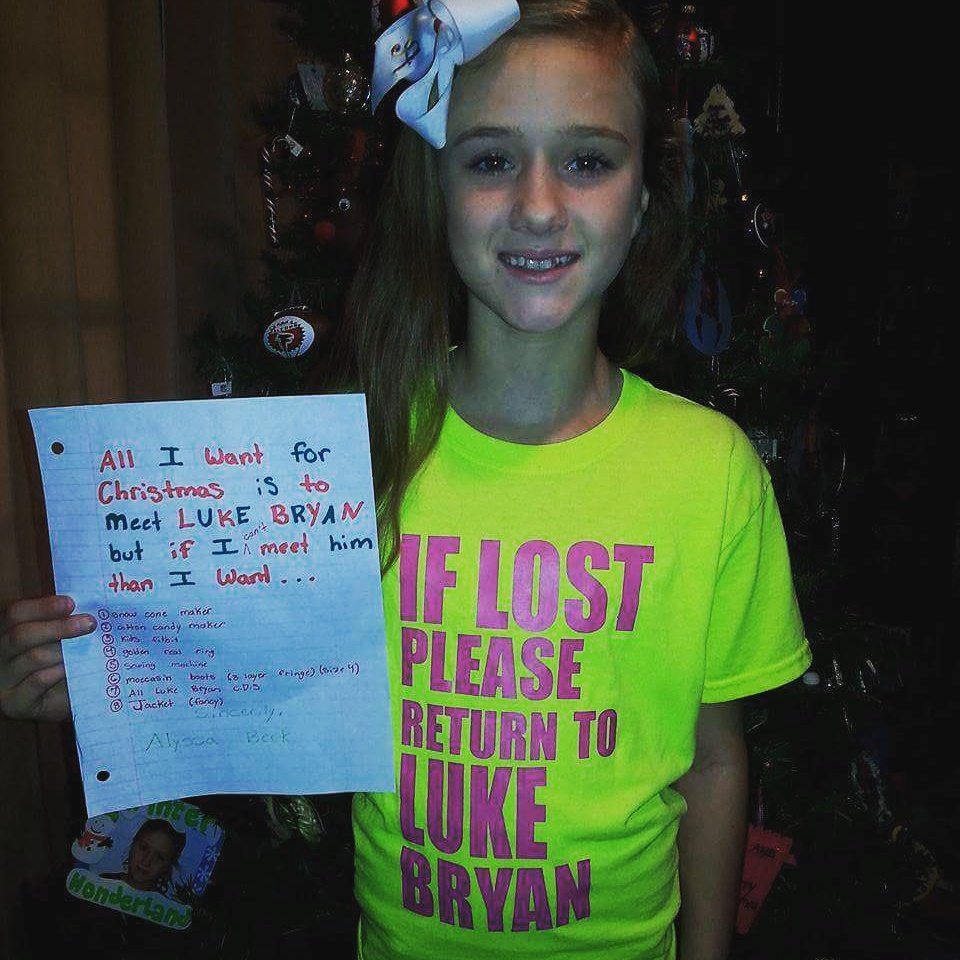 All I Want for
Christmas is to
meet LUKE BRYAN
but if I can't meet him
than I Want...
① Snow cone maker
② cotton candy maker
③ kids fitbit
④ golden real ring
⑤ Sewing machine
⑥ moccasin boots (3 layer fringe) (Size 4)
⑦ All Luke Bryan C.D.S
⑧ Jacket (fancy)
Sincerly,
Alyssa Beck
IF LOST
PLEASE
RETURN TO
LUKE
BRYAN
Winter
Wonderland
AND